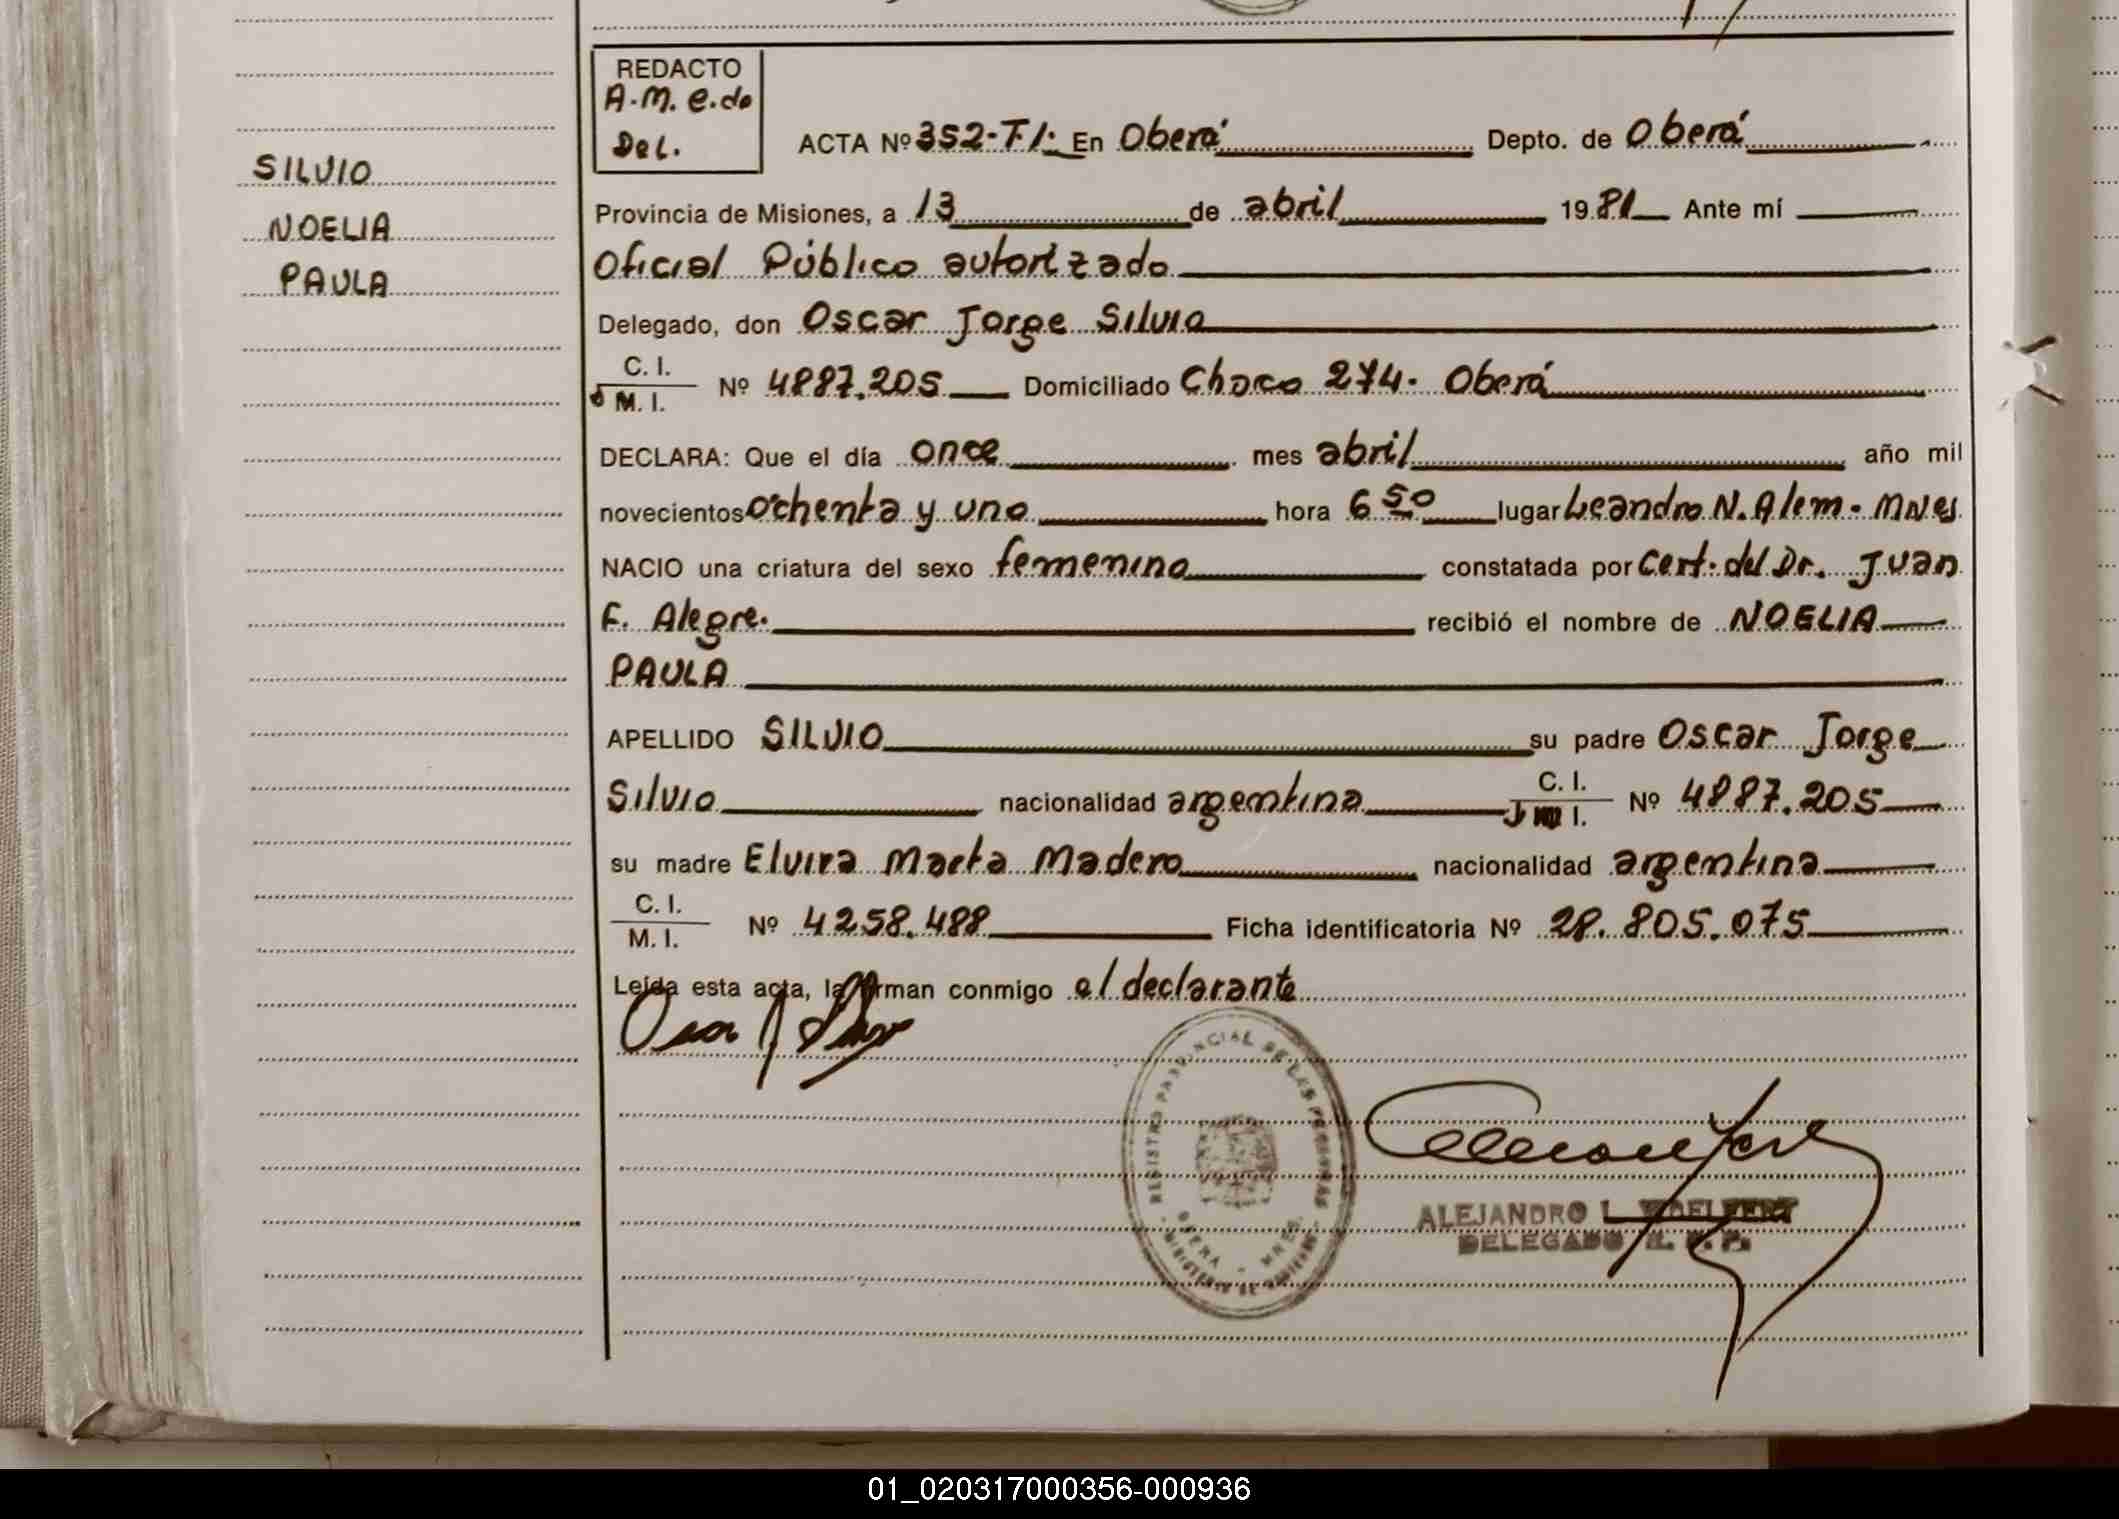 SILVIO
NOELIA
PAULA
REDACTO
A.M. e.do
Del.
ACTA Nº 352-T/: En Oberá Depto. de Oberá
Provincia de Misiones, a 13 de abril 1981 Ante mí
Oficial Público autorizado
Delegado, don Oscar Jorge Silvio
C. I.
M. I. Nº 4887.205 Domiciliado Choco 274. Oberá
DECLARA: Que el día once mes abril año mil
novecientos ochenta y uno hora 6 50 lugar Leandro N. Alem - Mnes
NACIO una criatura del sexo femenino constatada por Cert. del Dr. Juan
F. Alegre. recibió el nombre de NOELIA
PAULA
APELLIDO SILVIO su padre Oscar Jorge
Silvio nacionalidad argentina C. I. I. Nº 4887.205
su madre Elvira Marta Madero nacionalidad argentina
C. I.
M. I. Nº 4258.488 Ficha identificatoria Nº 28.805.075
Leída esta acta, la firman conmigo el declarante
REGISTRO PROVINCIAL DE LAS PERSONAS
OBERA - MNES.
ALEJANDRO L.
DELEGADO R. P. P.
01_020317000356-000936